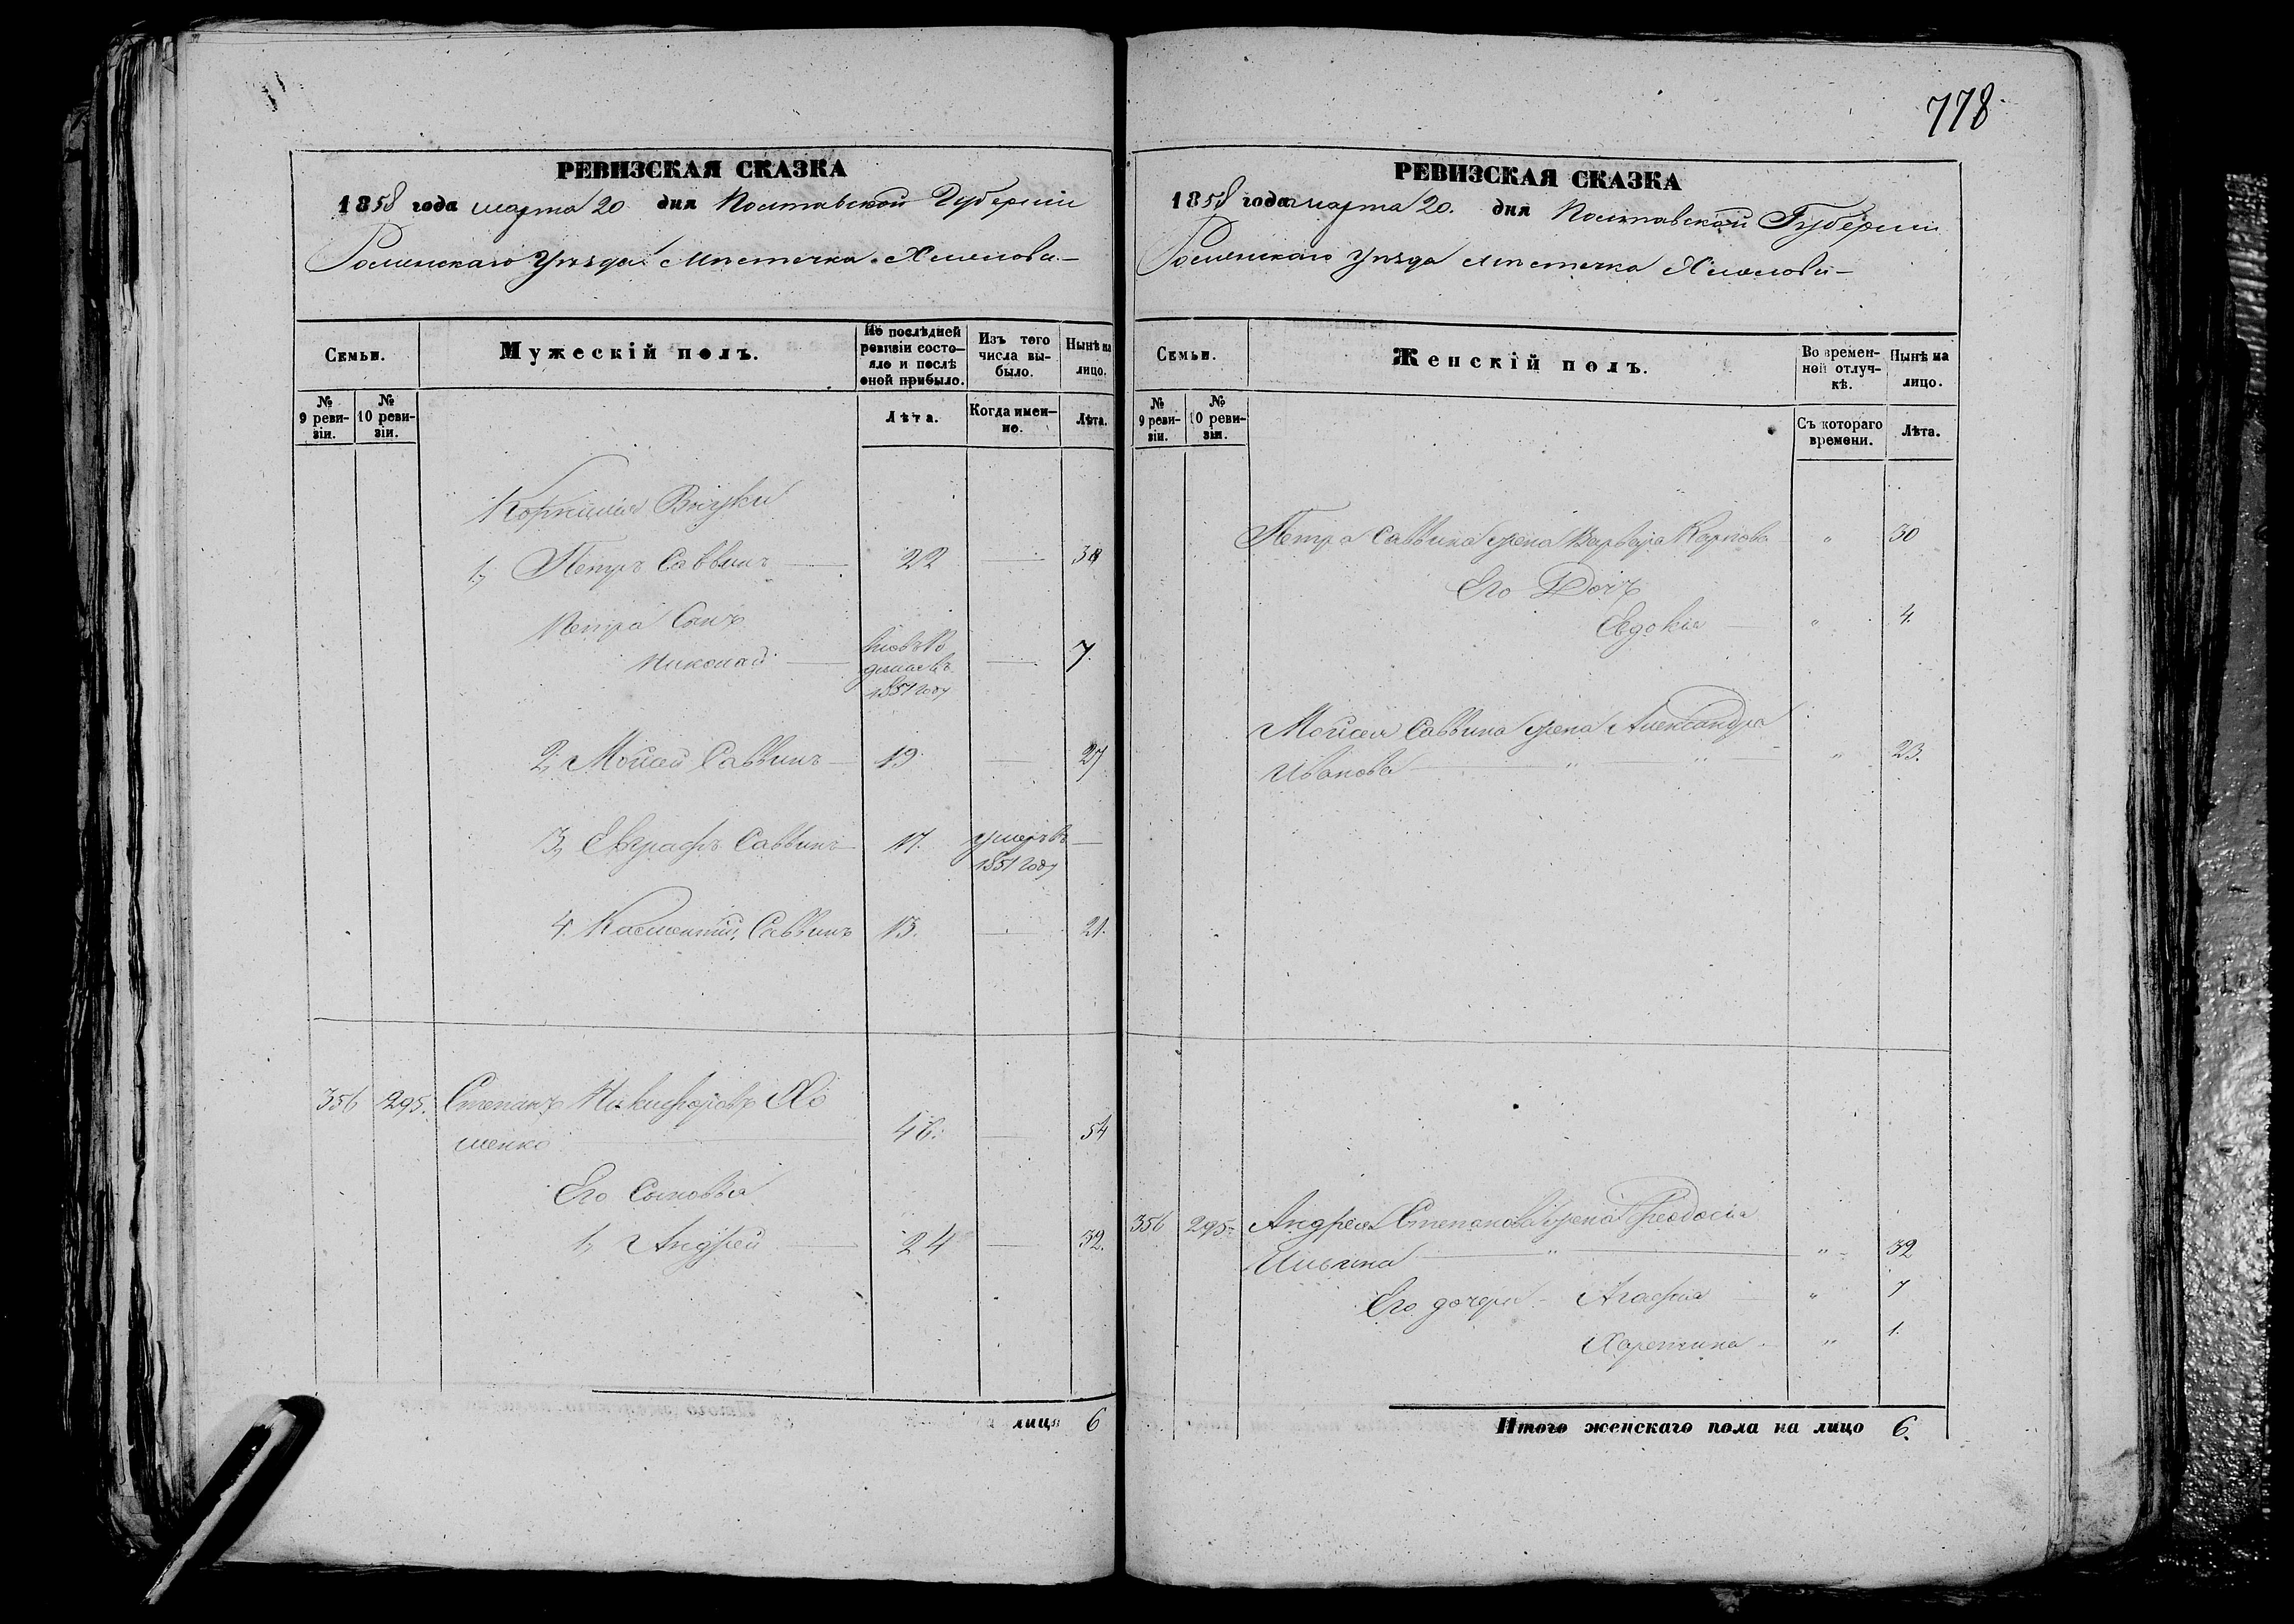 778
РЕВИЗСКАЯ СКАЗКА
1858 года марта 20 дня Полтавской Губерніи
Роменскаго Уѣзда Мѣстечка Хмелова
Семьи.
Мужескій полъ.
По послѣдней ревизіи состояло и послѣ оной прибыло.
Изъ того числа выбыло.
Нынѣ на лицо.
№ 9 ревизіи.
№ 10 ревизіи.
Лѣта.
Когда именно.
Лѣта.
Корнилія Внуки
1, Петръ Саввинъ 22 — 30
Петра Сынъ
Николай — 7.
1851 году
2, Мойсей Саввинъ 19 — 27
3, Евграфъ Саввинъ 17. умеръ въ —
1851 году
4. Саввинъ 13. — 21.
356 295. Степанъ Никифоровъ Хо
менко 46. — 54
Его Сыновья
1, Андрей — 24 — 32.
лицо 6
РЕВИЗСКАЯ СКАЗКА
1858 года марта 20. дня Полтавской Губерніи
Роменскаго Уѣзда Мѣстечка Хмелова
Семьи.
Женскій полъ.
Во временной отлучкѣ.
Нынѣ на лицо.
№ 9 ревизіи.
№ 10 ревизіи.
Съ котораго времени.
Лѣта.
Петра Саввина жена Варвара Карпова " 30
Его Дочь
Евдокія — " 4.
Мойсея Саввина жена Александра
Иванова — " " — " 23.
356 295. Андрея Степанова жена Феодосія
Ильина — " — " 32
Его дочери — Агафія " 7
Харетина " 1.
Итого женскаго пола на лицо 6.